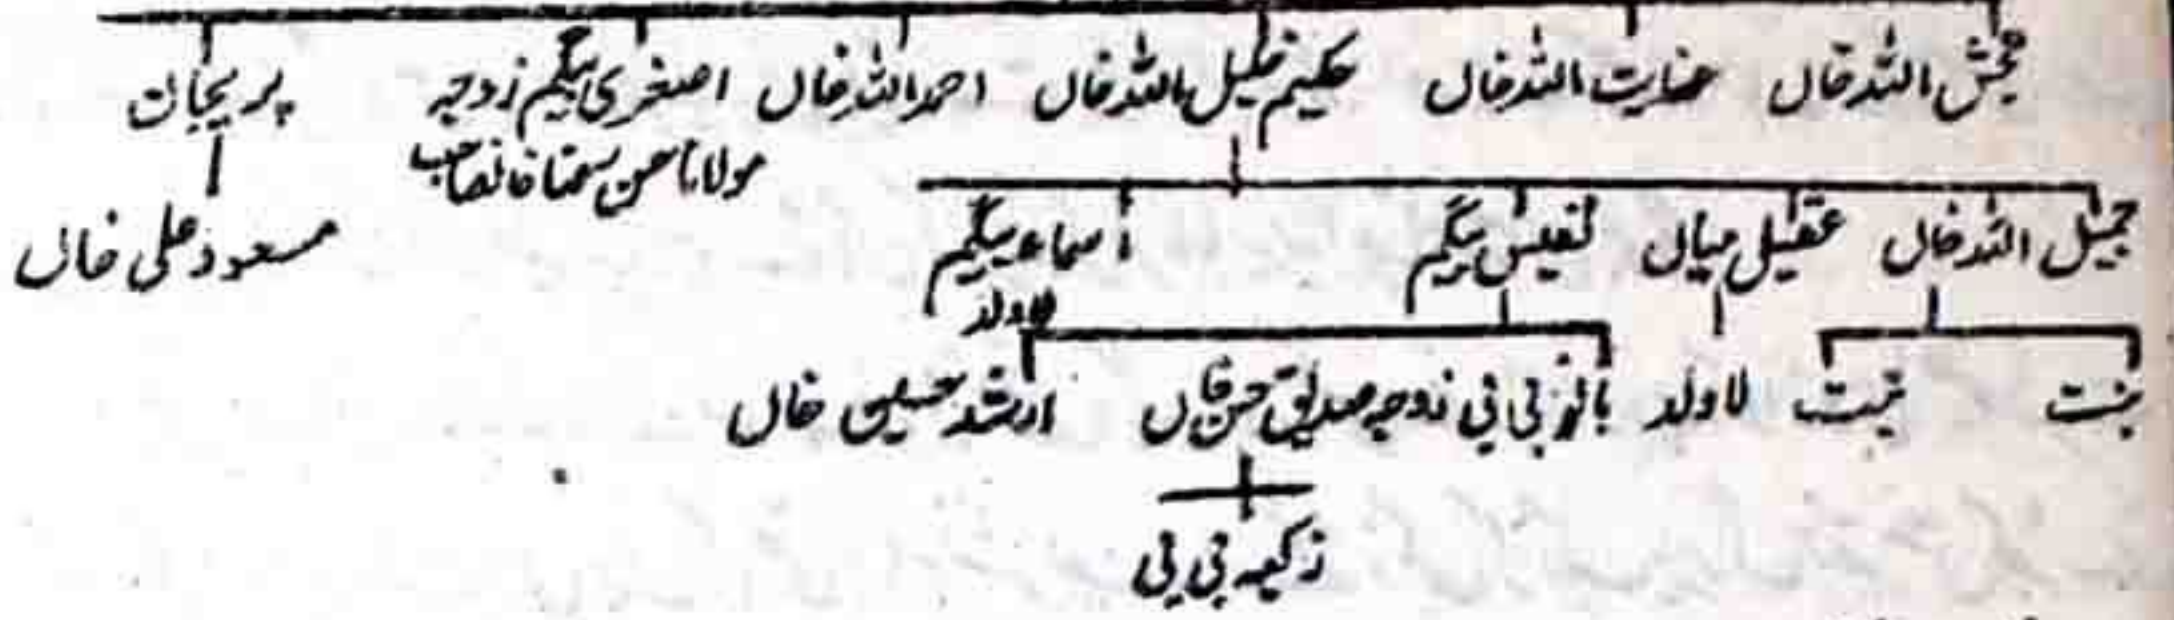 بخش اللہ خاں عنایت اللہ خاں حکیم خلیل اللہ خاں احمد اللہ خاں اصغری بیگم زوجہ
مولانا حسن رضا خانصاحب
مسعود علی خاں
جمیل اللہ خاں عقیل میاں نفیس بیگم اسماء بیگم
لاولد
بنت بنت لاولد بانو بی بی زوجہ صدیق حسن خاں ارشد حسین خاں
زکیہ بی بی